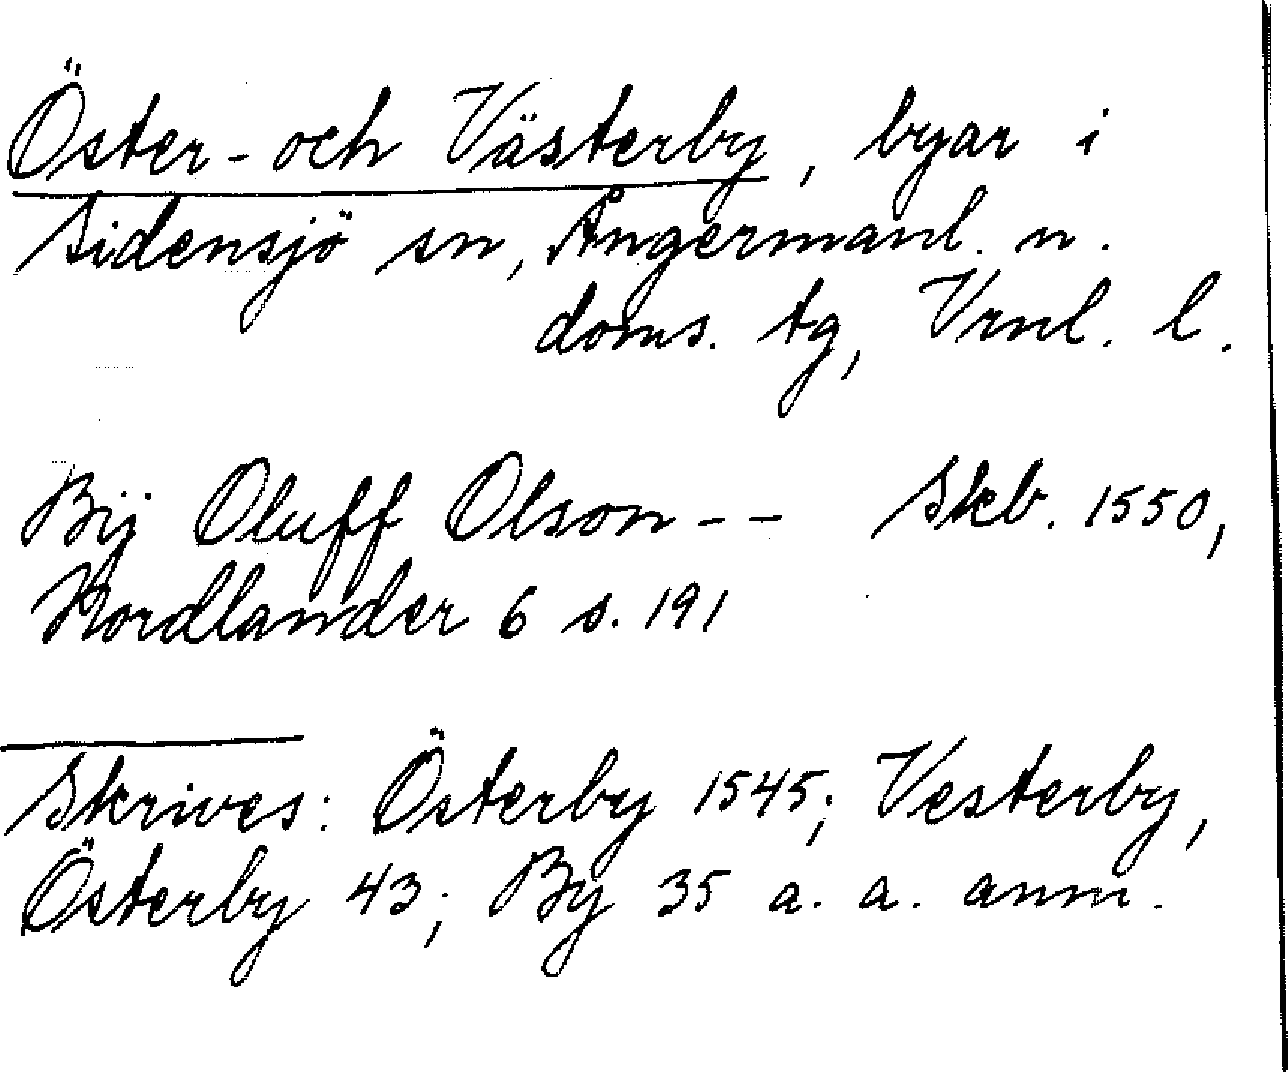 Öster- och Västerby, byar i
Sidensjö sn, Ångermanl. n.
doms. tg, Vrnl. l.
Bÿ Oluff Olson - - Skb. 1550,
Nordlander 6 s. 191
Skrives: Österby 1545; Vesterby,
Österby 43; By 35 a. a. anm.